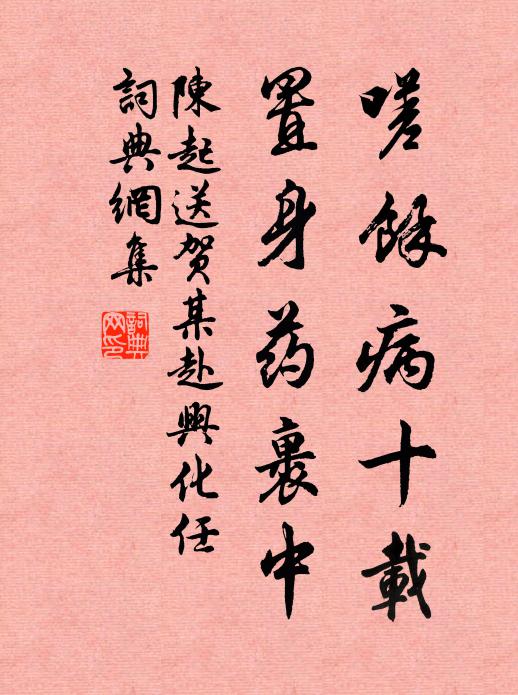 嗟餘病十載
置身药裹中
陳起送贺某赴興化任
詞典網集
詞典网印